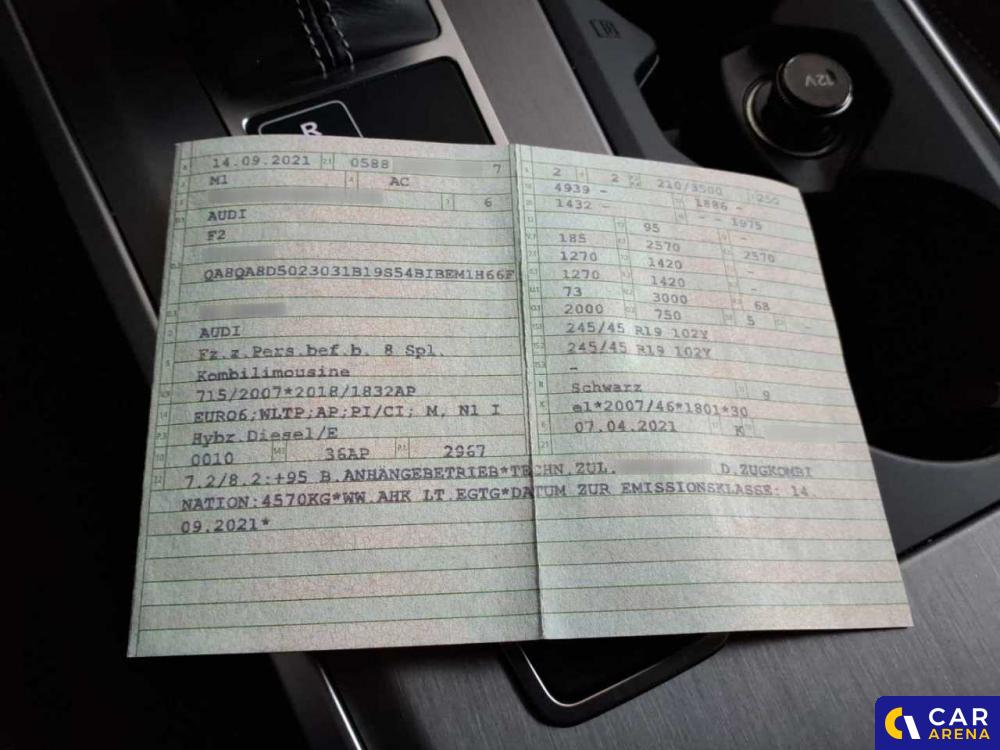 R
12V
14.09.2021 2.1 0588 7
M1 4 AC
6
AUDI
F2
QA8QA8D5023031B19S54BIBEM1H66F
AUDI
Fz.z.Pers.bef.b. 8 Spl.
Kombilimousine
715/2007*2018/1832AP
EURO6;WLTP;AP;PI/CI; M, N1 I
Hybr.Diesel/E
0010 36AP P.1 2967
2 2 210/3500 250
4939 - 1886 -
1432 - - - 1975
95 -
185 2570 2570
1270 1420 -
1270 1420 -
73 3000 68
2000 750 5 -
245/45 R19 102Y
245/45 R19 102Y
-
Schwarz 9
e1*2007/46*1801*30
07.04.2021 K
7.2/8.2:+95 B.ANHÄNGEBETRIEB*TECHN.ZUL. D.ZUGKOMBI
NATION:4570KG*WW.AHK LT.EGTG*DATUM ZUR EMISSIONSKLASSE: 14.
09.2021*
CAR
ARENA